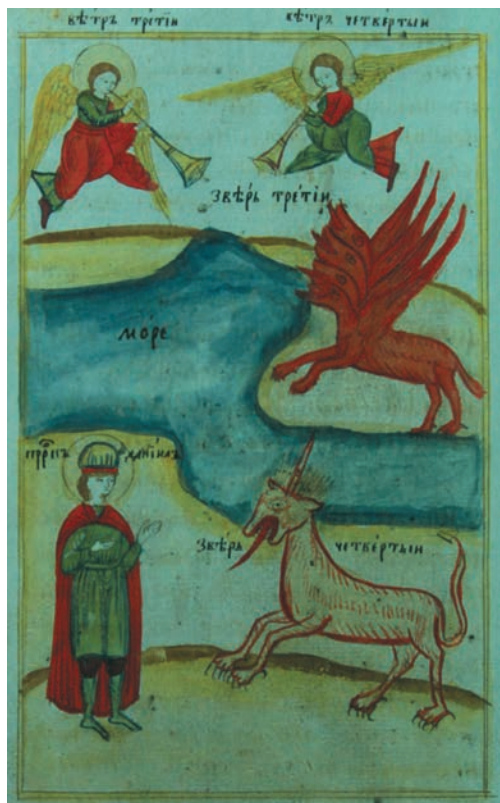 вѣ́тръ трéтїи
вѣ́тръ четвéртыи
Звѣ́рь трéтїи
мóре
прⷪ҇ркъ данїи́лъ
Звѣ́рь четвéртыи